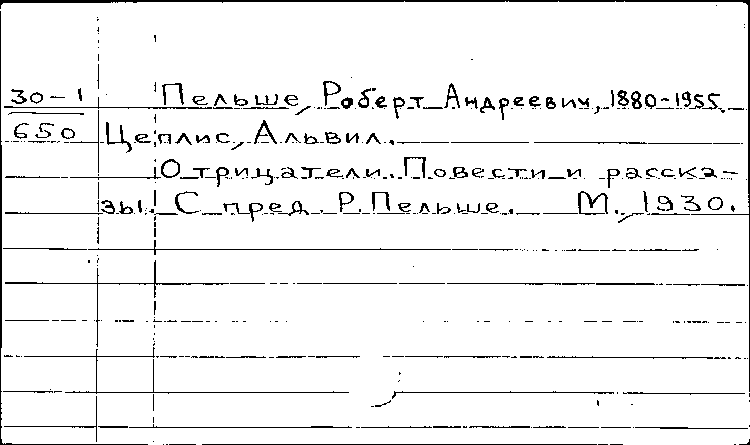 30-1 Пельше, Роберт Андреевич, 1880-1955.
650 Цеплис, Альвил.
Отрицатели. Повести и расска-
зы. С пред. Р. Пельше. М., 1930.